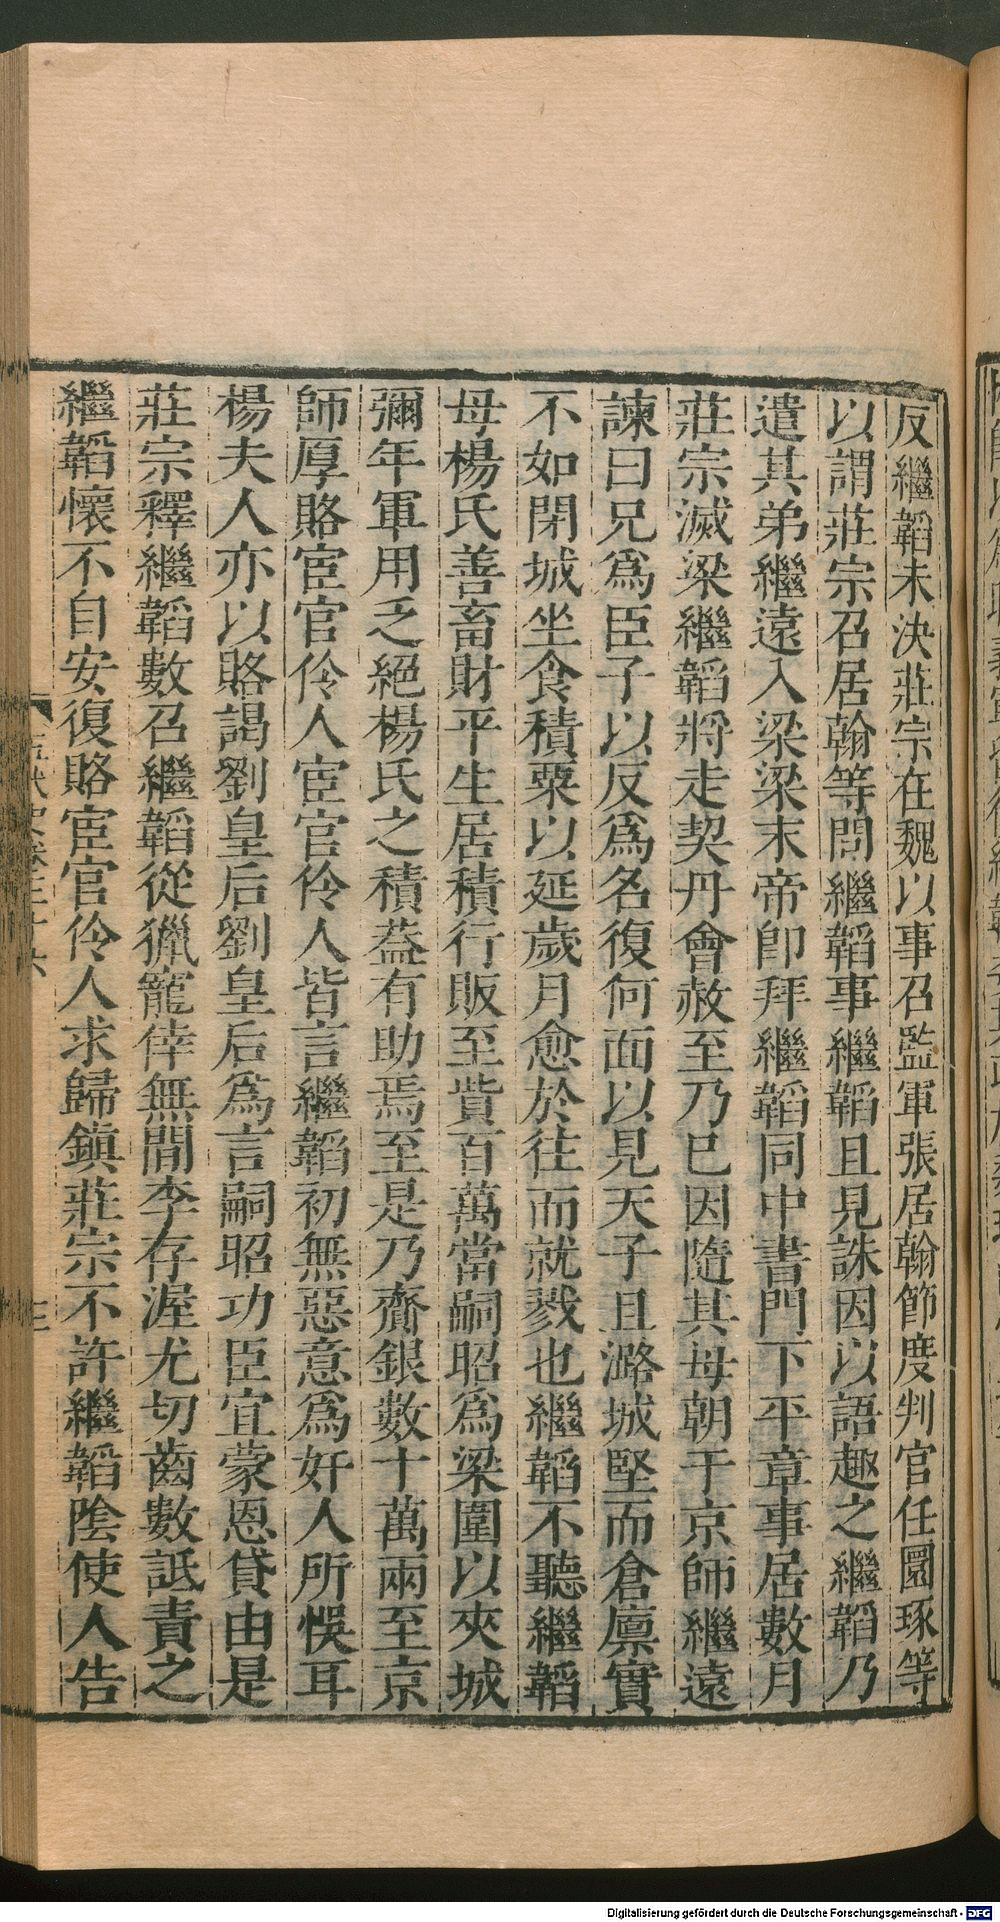 反繼韜未決莊宗在魏以事召監軍張居翰節度判官任圜琢等
以謂莊宗召居翰等問繼韜事繼韜且見誅因以語趣之繼韜乃
遣其弟繼遠入梁梁末帝卽拜繼韜同中書門下平章事居數月
莊宗滅梁繼韜將走契丹會赦至乃已因隨其母朝于京師繼遠
諫曰兄爲臣子以反爲名復何面以見天子且潞城堅而倉廪實
不如閉城坐食積粟以延歲月愈於往而就戮也繼韜不聽繼韜
母楊氏善畜財平生居積行販至貲百萬當嗣昭爲梁圍以夾城
彌年軍用乏絕楊氏之積葢有助焉至是乃齎銀數十萬兩至京
師厚賂宦官伶人宦官伶人皆言繼韜初無惡意爲奸人所悞耳
楊夫人亦以賂謁劉皇后劉皇后爲言嗣昭功臣宜蒙恩貸由是
莊宗釋繼韜數召繼韜從獵寵倖無間李存渥尤切齒數詆責之
繼韜懷不自安復賂宦官伶人求歸鎮莊宗不許繼韜陰使人告
五代史卷三十六
三
Digitalisierung gefördert durch die Deutsche Forschungsgemeinschaft - DFG